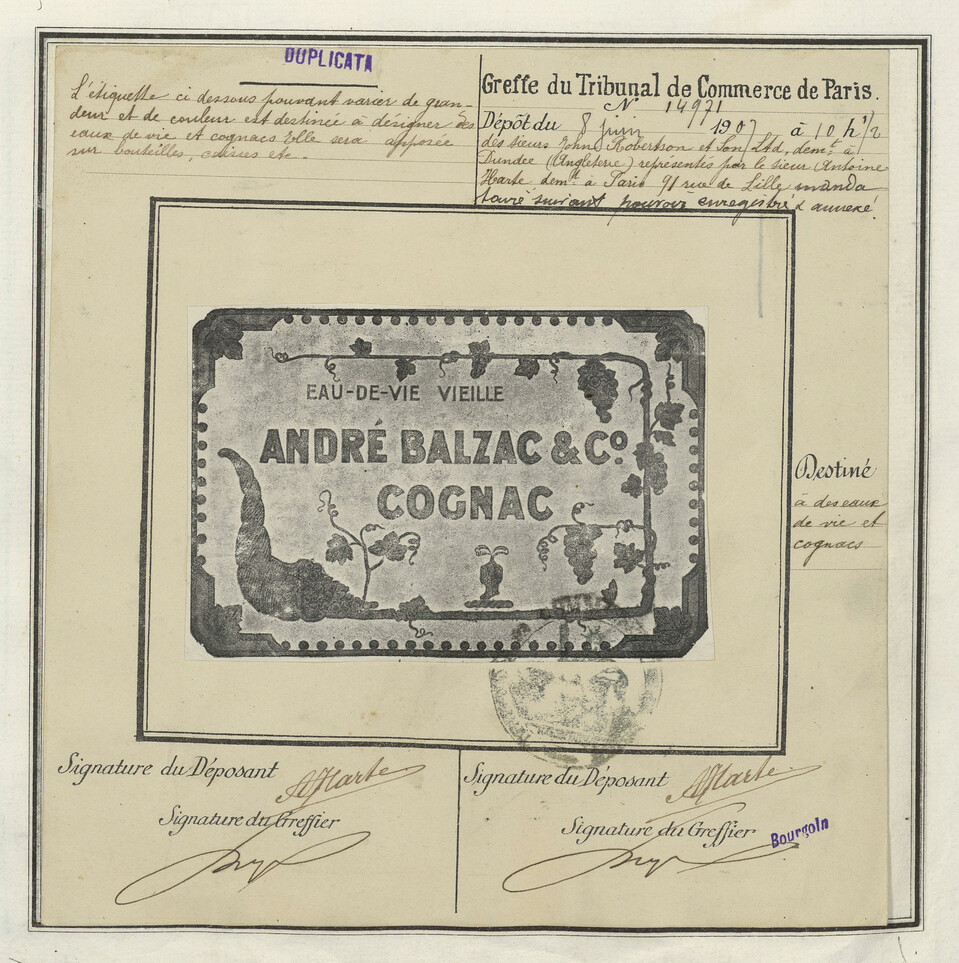 DUPLICATA
L'étiquette ci dessous pouvant varier de gran-
deur et de couleur est destinée à désigner des
eaux de vie et cognacs Elle sera apposée
sur bouteilles, caisses etc.
Greffe du Tribunal de Commerce de Paris.
N° 14971
Dépôt du 8 juin 1907 à 10 h 1/2
des sieurs John Robertson et Son Ltd, demt à
Dundee (Angleterre) représentés par le sieur Antoine
Harte demt à Paris 91 rue de Lille manda
taire suivant pouvoir enregistré & annexé.
EAU-DE-VIE VIEILLE
ANDRÉ BALZAC & Co.
COGNAC
Destiné
à des eaux
de vie et
cognacs
Signature du Déposant AHarte
Signature du Greffier
Signature du Déposant AHarte
Signature du Greffier Bourgoin